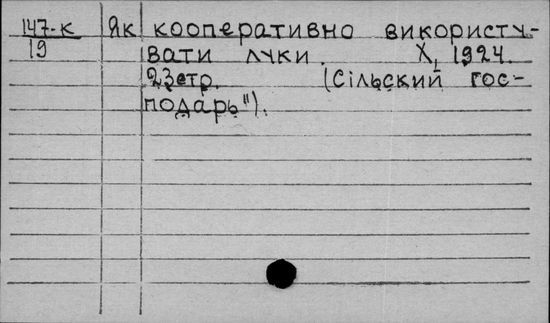 147-к Як кооперативно використу-
19 вати луки. Х, 1924.
23стр. (Сільский гос-
подарь").